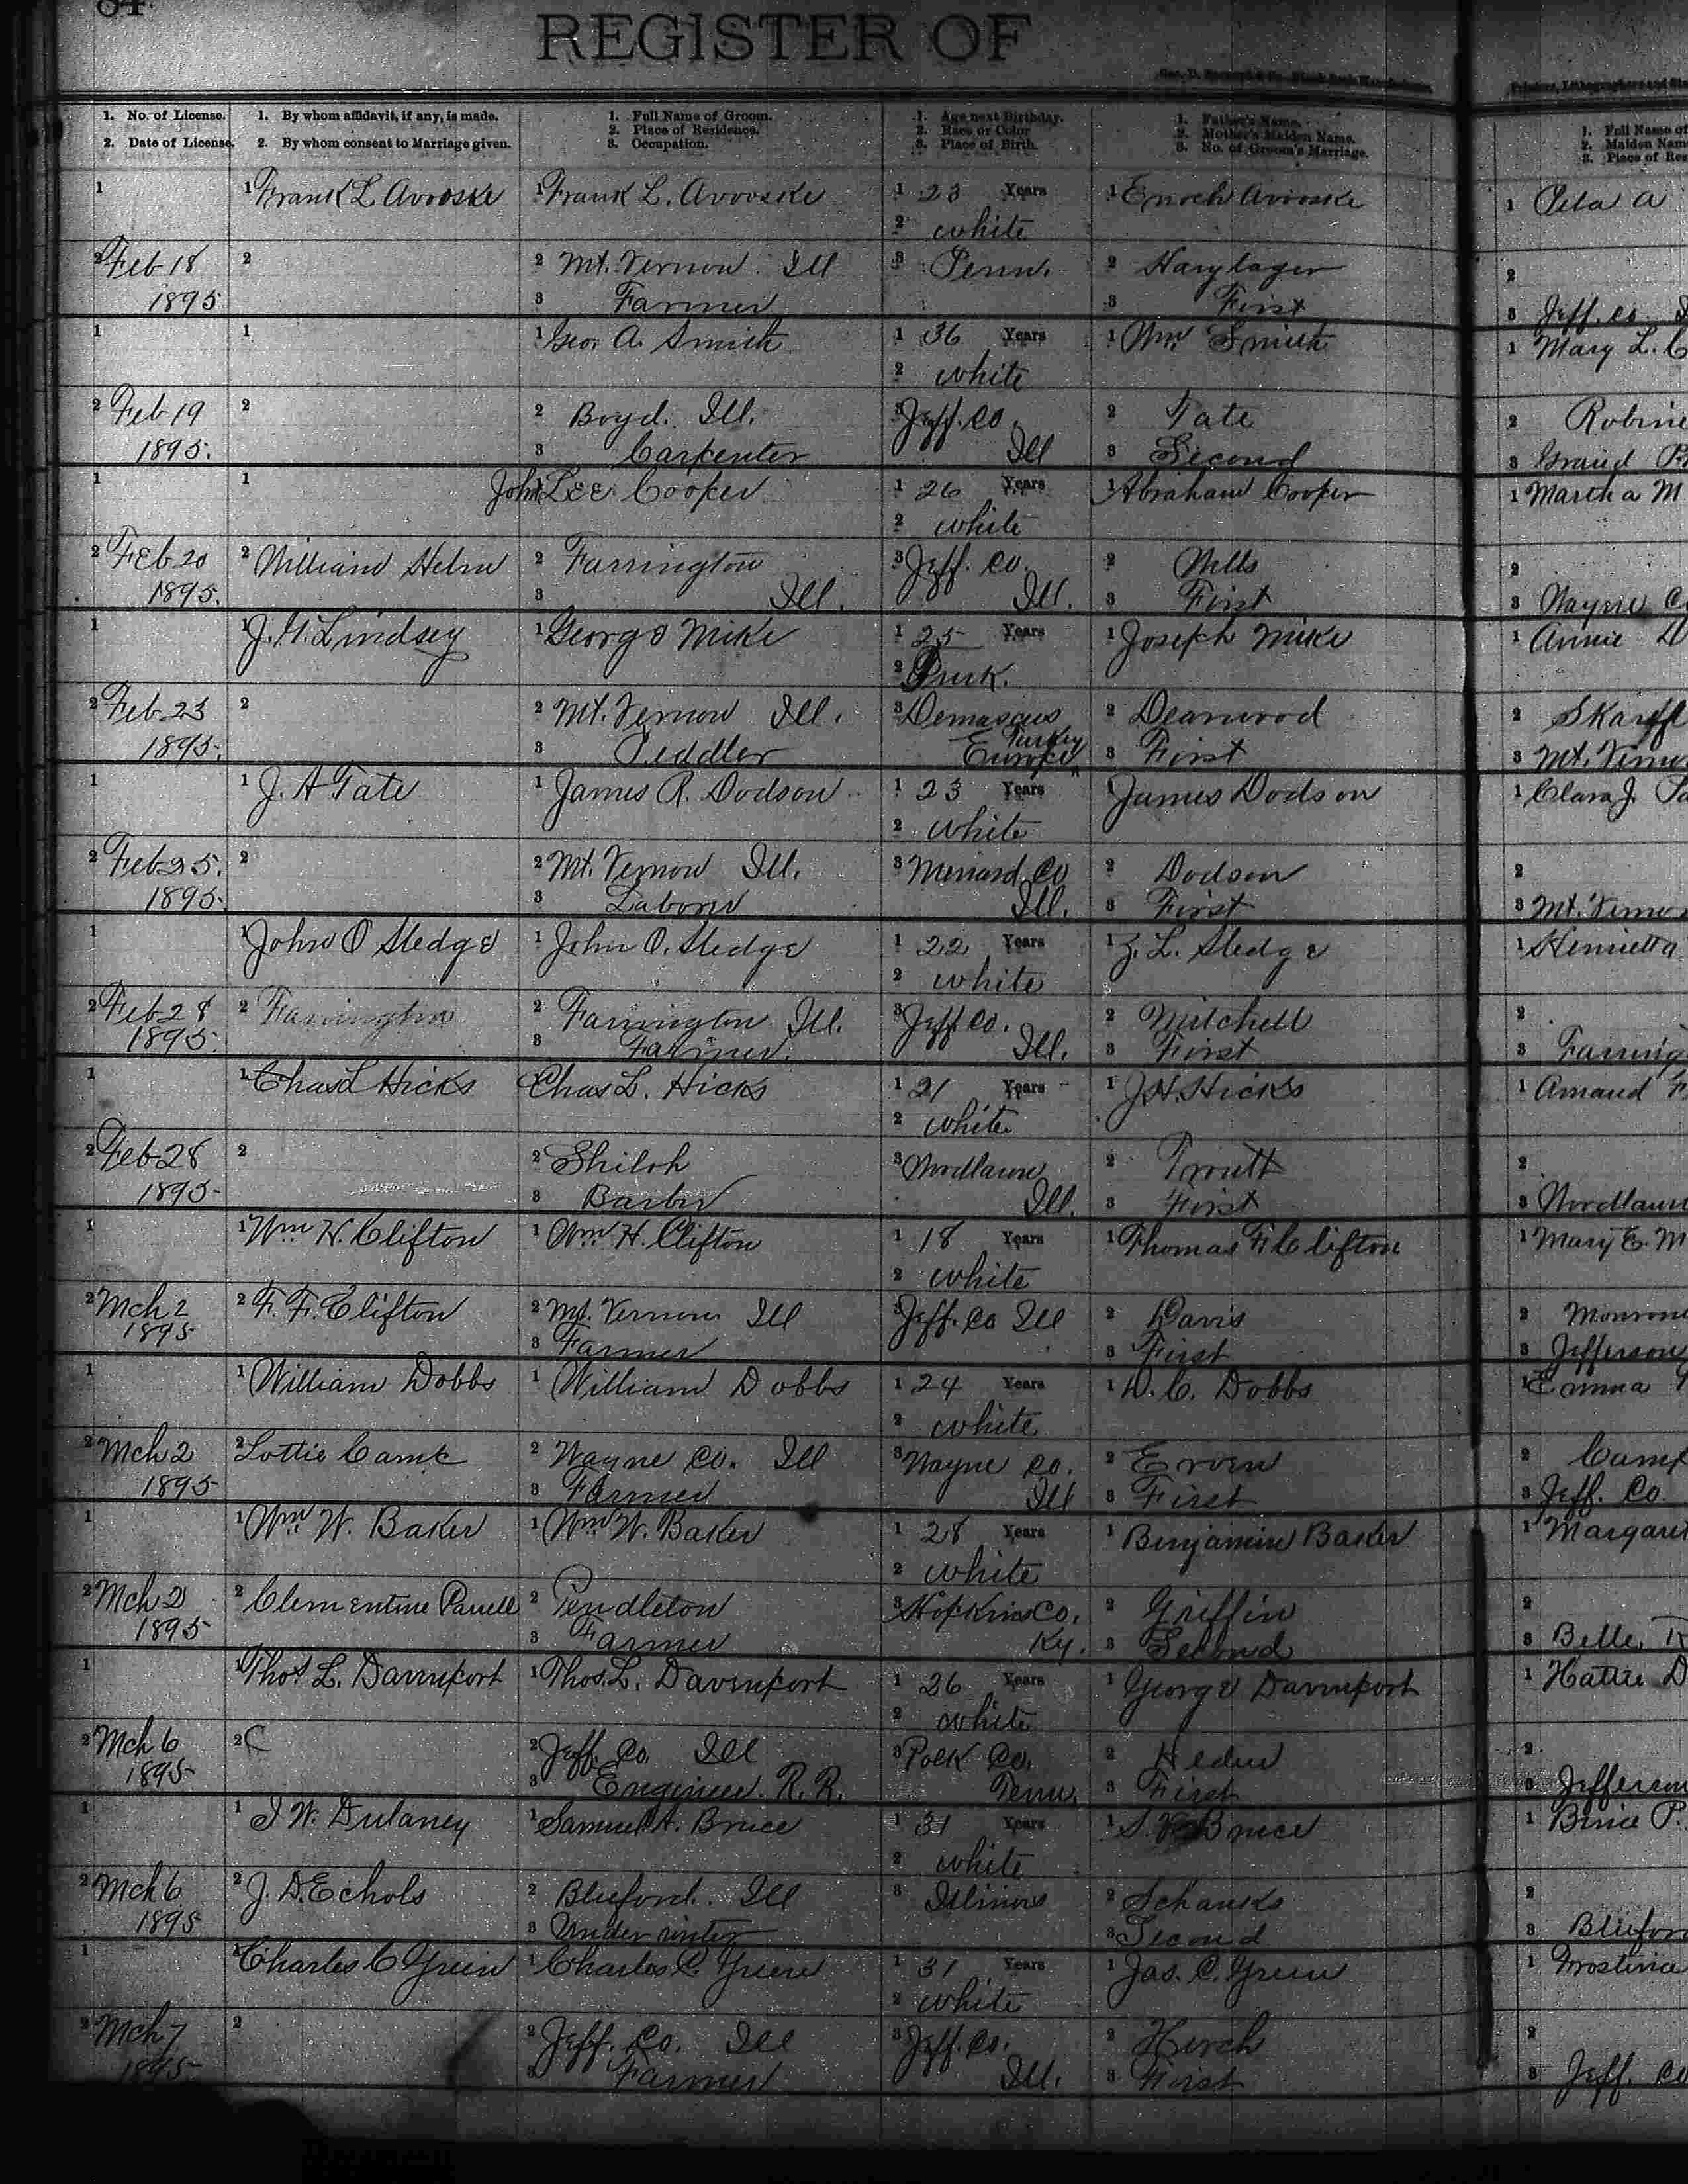 84
REGISTER OF
1. No. of License. 1. By whom affidavit, if any, is made. 1. Full Name of Groom. 1. Age next Birthday. 1. Father's Name. 1. Full Name of
2. Place of Residence. 2. Race or Color 2. Mother's Maiden Name. 2. Maiden Nam
2. Date of License. 2. By whom consent to Marriage given. 3. Occupation. 3. Place of Birth. 3. No. of Groom's Marriage. 3. Place of Res
1 1 Frank L Avooske 1 Frank L. Avooske 1 23 Years 1 Enoch Avooske 1
2 white
2 Feb 18 2 2 Mt. Vernon Ill 3 Penn. 2 2
1895 3 Farmer 3 First 3 Jeff. Co
1 1 1 Geo. A. Smith 1 36 Years 1 Wm Smith 1 Mary L. C
2 white
2 Feb 19 2 2 Boyd. Ill. 3 Jeff. Co 2 Tate 2 Robins
1895. 3 Carpenter Ill 3 Second 3 Grand
1 1 John Lee Cooper 1 26 Years 1 Abraham Cooper 1 Martha M
2 white
2 Feb 20 2 William Helm 2 Farrington 3 Jeff. Co. 2 Wells 2
1895. 3 Ill. Ill. 3 First 3 Wayne C
1 1 J. H. Lindsey 1 George Mike 1 25 Years 1 Joseph Mike 1 Annie
2
2 Feb 23 2 2 Mt. Vernon Ill. 3 Demascus 2 Deanwood 2
Turkey
1895. 3 Peddler Europe 3 First 3 Mt. Verno
1 1 J. A Tate 1 James R. Dodson 1 23 Years 1 James Dodson 1 Clara J.
2 white
2 Feb 25. 2 2 Mt. Vernon Ill. 3 Menard Co 2 Dodson 2
1895. 3 Labore Ill. 3 First 3 Mt. Verno
1 1 John O Sledge 1 John O. Sledge 1 22 Years 1 Z. L. Sledge 1 Henrietta
2 white
2 Feb 28 2 Farrington 2 Farrington Ill. 3 Jeff Co. 2 Mitchell 2
1895. 3 Farmer. Ill. 3 First 3 Farring
1 1 Chas L Hicks Chas L. Hicks 1 21 Years 1 J. H. Hicks 1 Amand
2 white
2 Feb 28 2 2 Shiloh 3 Woodlawn 2 Troutt 2
1895 3 Barber Ill. 3 First 3 Woodlawn
1 1 Wm H. Clifton 1 Wm H. Clifton 1 18 Years 1 Thomas F Clifton 1 Mary E. M
2 white
2 Mch 2 2 F. F. Clifton 2 Mt. Vernon Ill 3 Jeff. Co Ill 2 Davis 2
1895 3 Farmer 3 First 3 Jefferson
1 1 William Dobbs 1 William Dobbs 1 24 Years 1 W. C. Dobbs 1 Emma
2 white
2 Mch 2 2 Lottie Camp 2 Wayne Co. Ill 3 Wayne Co. 2 Erven 2 Camp
1895 3 Farmer Ill 3 First 3 Jeff. Co.
1 1 Wm W. Baker 1 Wm W. Baker 1 28 Years 1 Benjamin Baker 1 Margaret
2 white
2 Mch 2 2 Clementine 2 Pendleton 3 Hopkins Co. 2 Griffin 2
1895 3 Farmer Ky. 3 Second 3 Belle
1 1 Thos L. Davenport 1 Thos. L. Davenport 1 26 Years 1 George Davenport 1 Hattie D
2 white
2 Mch 6 2 C 2 Jeff. Co. Ill 3 Polk Co. 2 2
1895 3 Engineer. R. R. Tenn. 3 First 3 Jefferson
1 1 J W. Dulaney 1 Samuel A. Bruce 1 31 Years 1 Bruce 1
2 white
2 Mch 6 2 J. D. Echols 2 Bluford. Ill 3 Illinois 2 Schanks 2
1895 3 3 Second 3 Blufor
1 1 Charles C Green 1 Charles C. Green 1 31 Years 1 Jas. C. Green 1
2 white
2 Mch 7 2 2 Jeff. Co. Ill 3 Jeff. Co. 2 Hirch 2
1895 3 Farmer Ill. 3 First 3 Jeff. Co